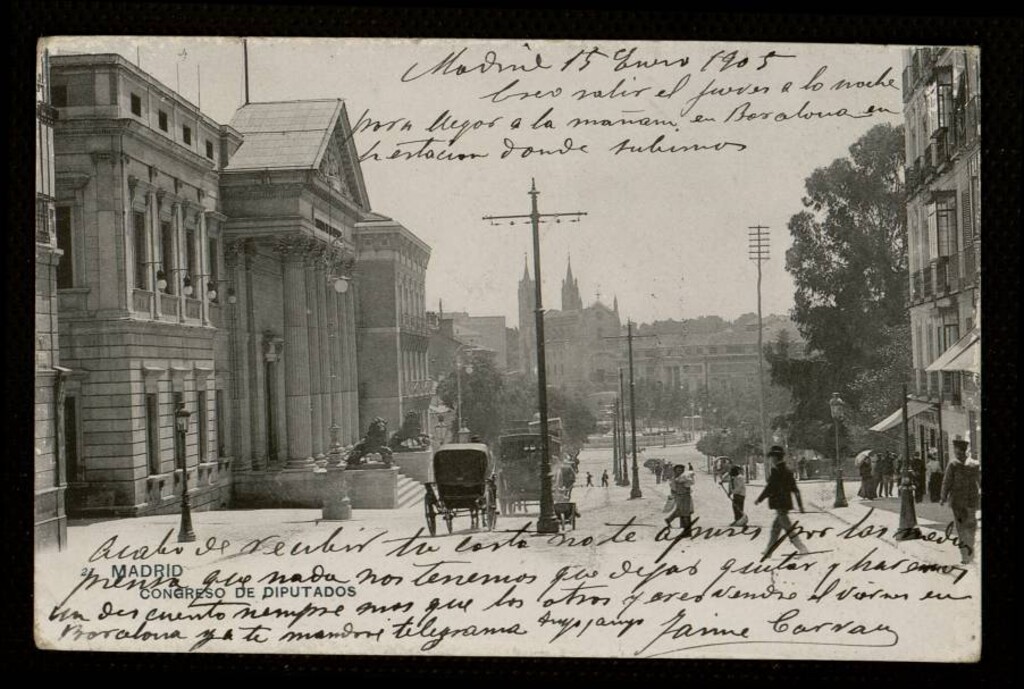 Madrid 15 Enero 1905
Creo salir el jueves a la noche
para llegar a la mañana en Barcelona en
la estacion donde subimos
Acabo de recibir tu carta no te apures por las medias
prensa que nada nos tenemos que dejar quitar y haremos
un descuento siempre mas que los otros y creo vendre el viernes en
Barcelona ya te mandaré telegrama tuyo, amigo Jaime Carrau
2. MADRID
CONGRESO DE DIPUTADOS